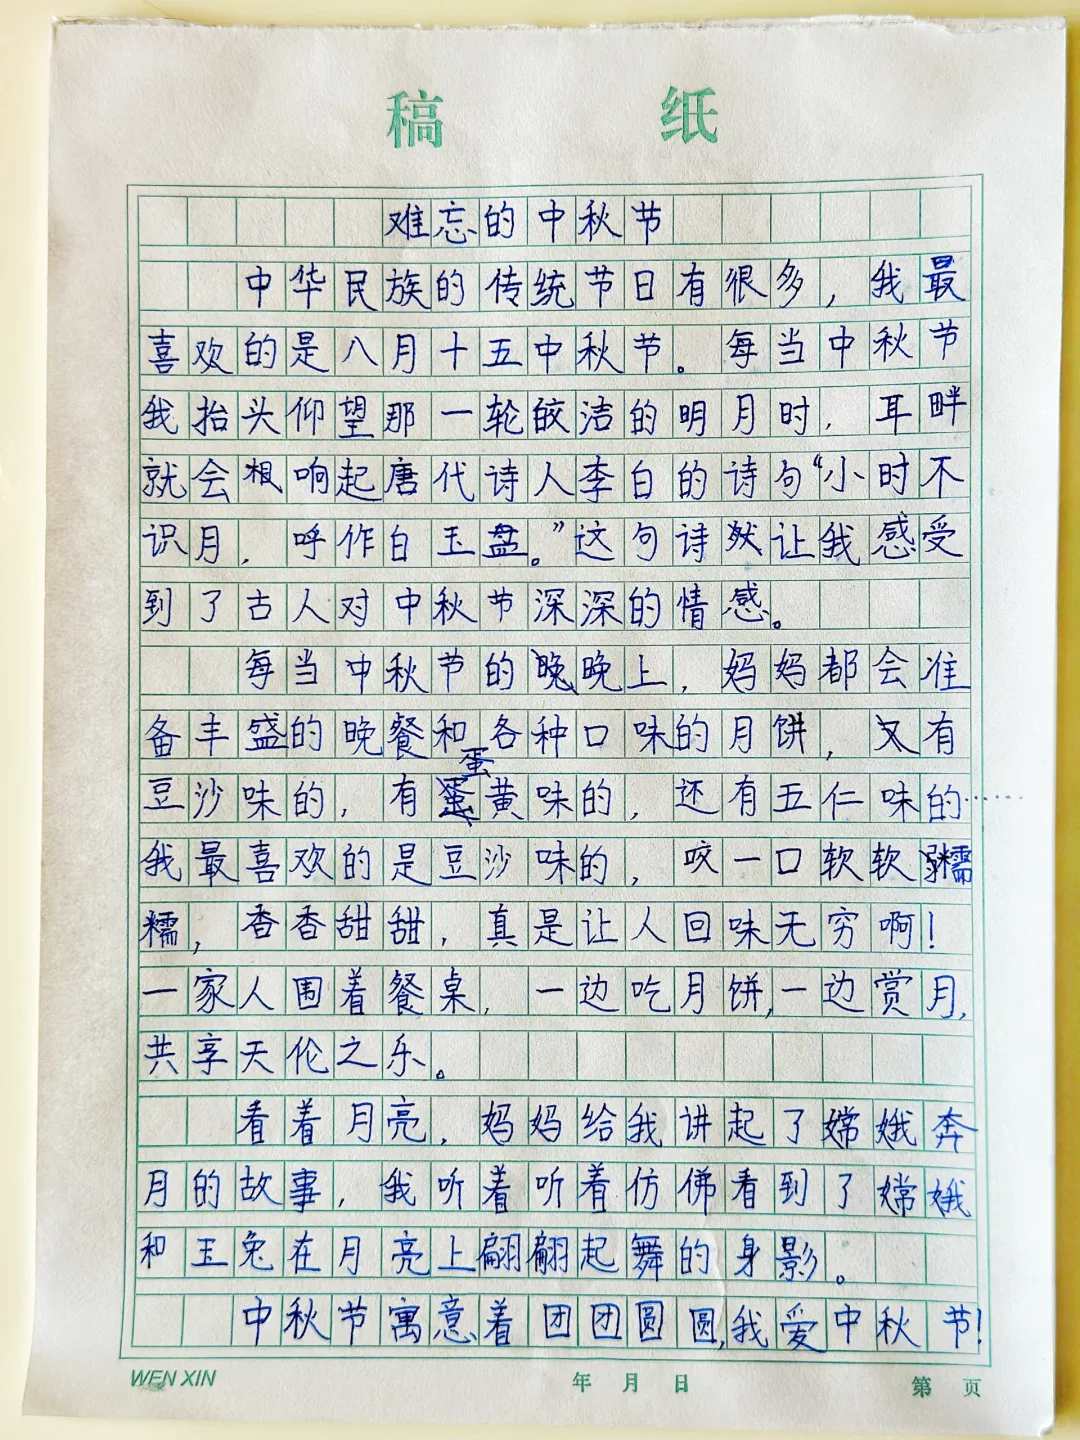 稿 纸
难忘的中秋节
中华民族的传统节日有很多，我最
喜欢的是八月十五中秋节。每当中秋节
我抬头仰望那一轮皎洁的明月时，耳畔
就会想响起唐代诗人李白的诗句“小时不
识月，呼作白玉盘。”这句诗让我感受
到了古人对中秋节深深的情感。
每当中秋节的晚晚上，妈妈都会准
备丰盛的晚餐和各种口味的月饼，又有
豆沙味的，有蛋黄味的，还有五仁味的……
我最喜欢的是豆沙味的，咬一口软软糯
糯，香香甜甜，真是让人回味无穷啊！
一家人围着餐桌，一边吃月饼，一边赏月，
共享天伦之乐。
看着月亮，妈妈给我讲起了嫦娥奔
月的故事，我听着听着仿佛看到了嫦娥
和玉兔在月亮上翩翩起舞的身影。
中秋节寓意着团团圆圆，我爱中秋节！
WEN XIN 年 月 日 第 页